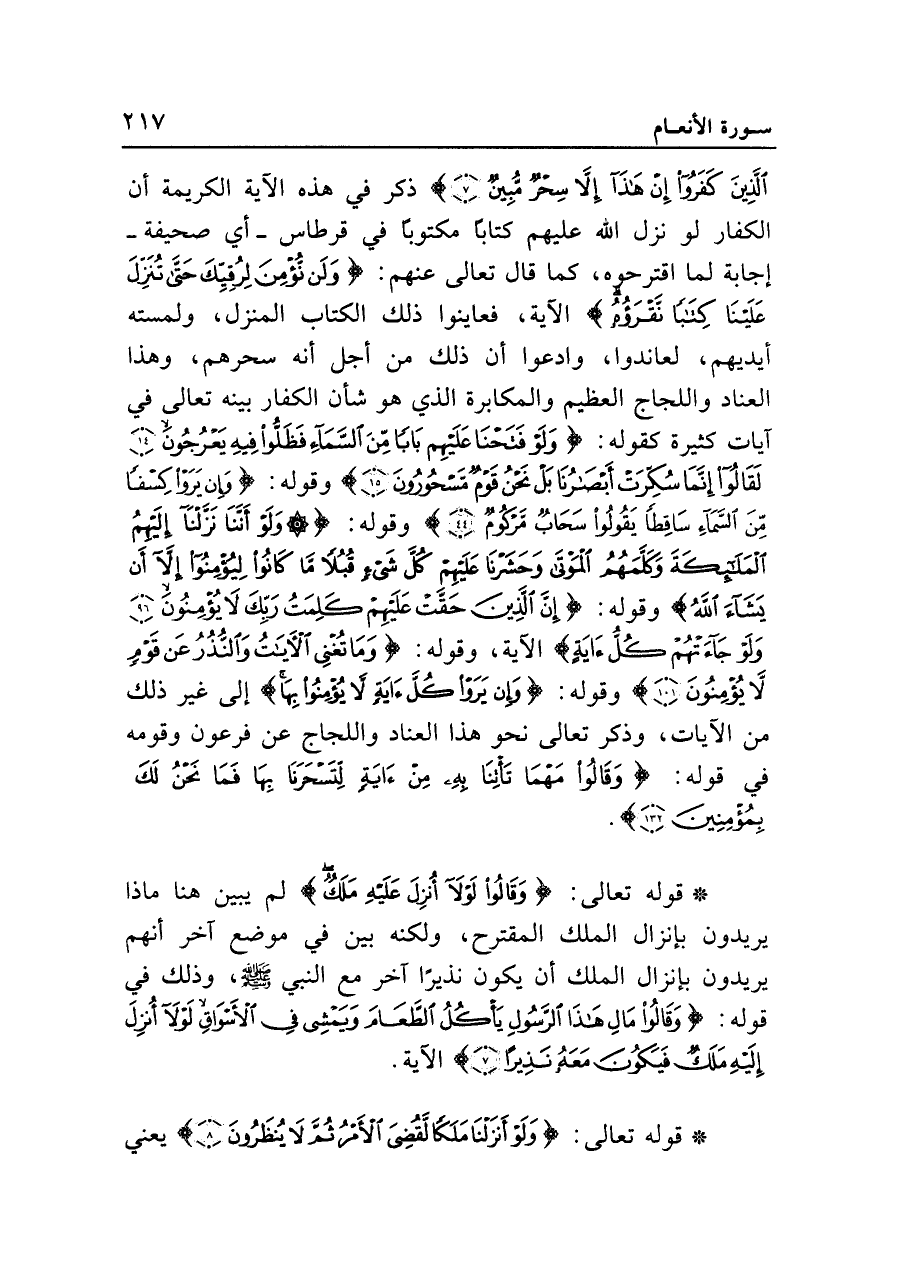 سورة الأنعام ٢١٧
ٱلَّذِينَ كَفَرُوٓا۟ إِنْ هَٰذَآ إِلَّا سِحْرٌ مُّبِينٌ ﴿٧﴾ ﴾ ذكر في هذه الآية الكريمة أن
الكفار لو نزل الله عليهم كتابًا مكتوبًا في قرطاس ـ أي صحيفة ـ
إجابة لما اقترحوه، كما قال تعالى عنهم: ﴿ وَلَن نُّؤْمِنَ لِرُقِيِّكَ حَتَّىٰ تُنَزِّلَ
عَلَيْنَا كِتَٰبًا نَّقْرَؤُهُۥ ﴾ الآية، فعاينوا ذلك الكتاب المنزل، ولمسته
أيديهم، لعاندوا، وادعوا أن ذلك من أجل أنه سحرهم، وهذا
العناد واللجاج العظيم والمكابرة الذي هو شأن الكفار بينه تعالى في
آيات كثيرة كقوله: ﴿ وَلَوْ فَتَحْنَا عَلَيْهِم بَابًا مِّنَ ٱلسَّمَآءِ فَظَلُّوا۟ فِيهِ يَعْرُجُونَ ﴿١٤﴾
لَقَالُوٓا۟ إِنَّمَا سُكِّرَتْ أَبْصَٰرُنَا بَلْ نَحْنُ قَوْمٌ مَّسْحُورُونَ ﴿١٥﴾ ﴾ وقوله: ﴿ وَإِن يَرَوْا۟ كِسْفًا
مِّنَ ٱلسَّمَآءِ سَاقِطًا يَقُولُوا۟ سَحَابٌ مَّرْكُومٌ ﴿٤٤﴾ ﴾ وقوله: ﴿ ۞ وَلَوْ أَنَّنَا نَزَّلْنَآ إِلَيْهِمُ
ٱلْمَلَٰٓئِكَةَ وَكَلَّمَهُمُ ٱلْمَوْتَىٰ وَحَشَرْنَا عَلَيْهِمْ كُلَّ شَىْءٍ قُبُلًا مَّا كَانُوا۟ لِيُؤْمِنُوٓا۟ إِلَّآ أَن
يَشَآءَ ٱللَّهُ ﴾ وقوله: ﴿ إِنَّ ٱلَّذِينَ حَقَّتْ عَلَيْهِمْ كَلِمَتُ رَبِّكَ لَا يُؤْمِنُونَ ﴿٩٦﴾
وَلَوْ جَآءَتْهُمْ كُلُّ ءَايَةٍ ﴾ الآية، وقوله: ﴿ وَمَا تُغْنِى ٱلْءَايَٰتُ وَٱلنُّذُرُ عَن قَوْمٍ
لَّا يُؤْمِنُونَ ﴿١٠١﴾ ﴾ وقوله: ﴿ وَإِن يَرَوْا۟ كُلَّ ءَايَةٍ لَّا يُؤْمِنُوا۟ بِهَا ﴾ إلى غير ذلك
من الآيات، وذكر تعالى نحو هذا العناد واللجاج عن فرعون وقومه
في قوله: ﴿ وَقَالُوا۟ مَهْمَا تَأْتِنَا بِهِۦ مِنْ ءَايَةٍ لِّتَسْحَرَنَا بِهَا فَمَا نَحْنُ لَكَ
بِمُؤْمِنِينَ ﴿١٣٢﴾ ﴾.
* قوله تعالى: ﴿ وَقَالُوا۟ لَوْلَآ أُنزِلَ عَلَيْهِ مَلَكٌ ﴾ لم يبين هنا ماذا
يريدون بإنزال الملك المقترح، ولكنه بين في موضع آخر أنهم
يريدون بإنزال الملك أن يكون نذيرًا آخر مع النبي ﷺ، وذلك في
قوله: ﴿ وَقَالُوا۟ مَالِ هَٰذَا ٱلرَّسُولِ يَأْكُلُ ٱلطَّعَامَ وَيَمْشِى فِى ٱلْأَسْوَاقِ لَوْلَآ أُنزِلَ
إِلَيْهِ مَلَكٌ فَيَكُونَ مَعَهُۥ نَذِيرًا ﴿٧﴾ ﴾ الآية.
* قوله تعالى: ﴿ وَلَوْ أَنزَلْنَا مَلَكًا لَّقُضِىَ ٱلْأَمْرُ ثُمَّ لَا يُنظَرُونَ ﴿٨﴾ ﴾ يعني